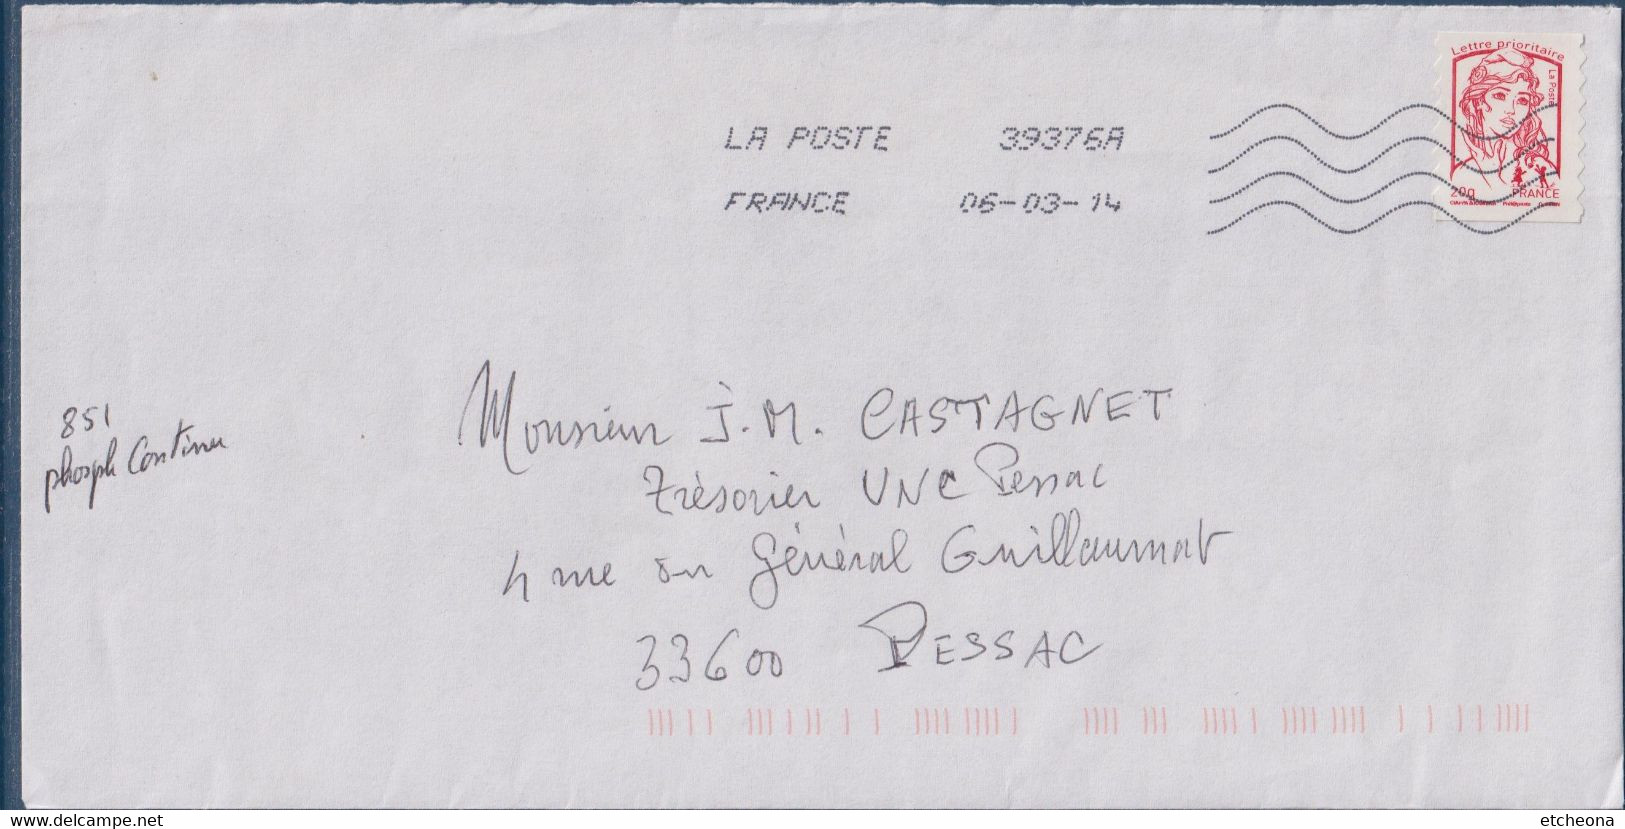 Lettre prioritaire
La Poste
LA POSTE 39376A
FRANCE 06-03-14
20g FRANCE
851
phosph Continu
Monsieur J.M. CASTAGNET
Trésorier UNC Pessac
4 rue du Général Guillaumat
33600 PESSAC
www.delcampe.net
etcheona